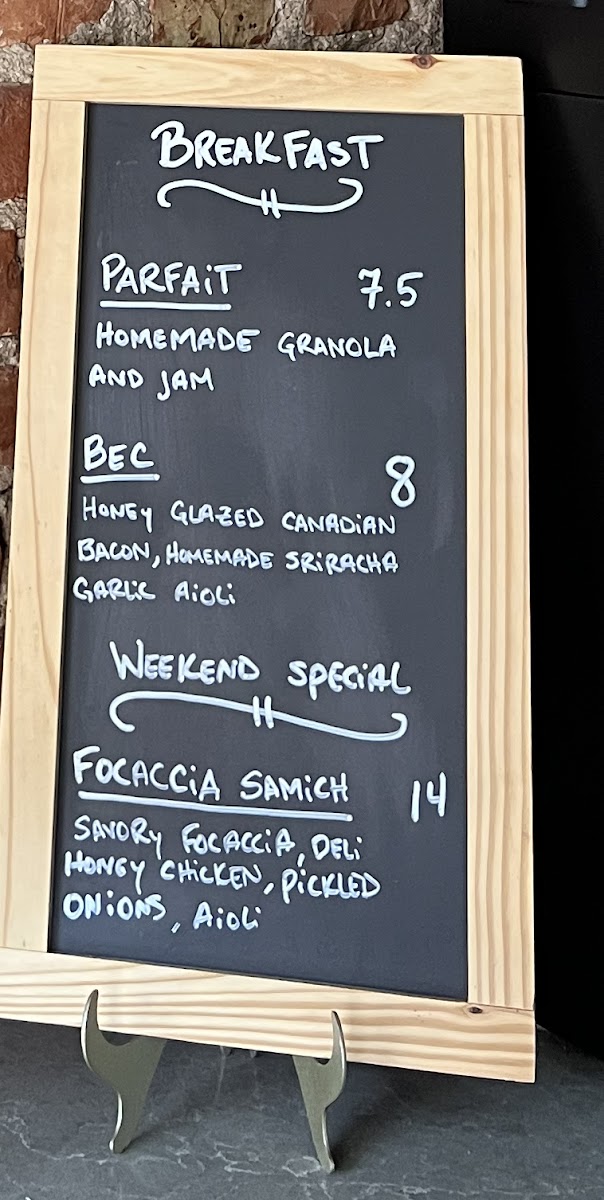 BREAKFAST
PARFAiT 7.5
HOMEMADE GRANOLA
AND JAM
BEC 8
HONEY GLAZED CANADiAN
BACON, HOMEMADE SRiRACHA
GARLiC AiOLi
WEEKEND SPECiAL
FOCACCiA SAMiCH 14
SAVORY FOCACCiA, DELi
HONEY CHiCKEN, PiCKLED
ONiONS, AiOLi